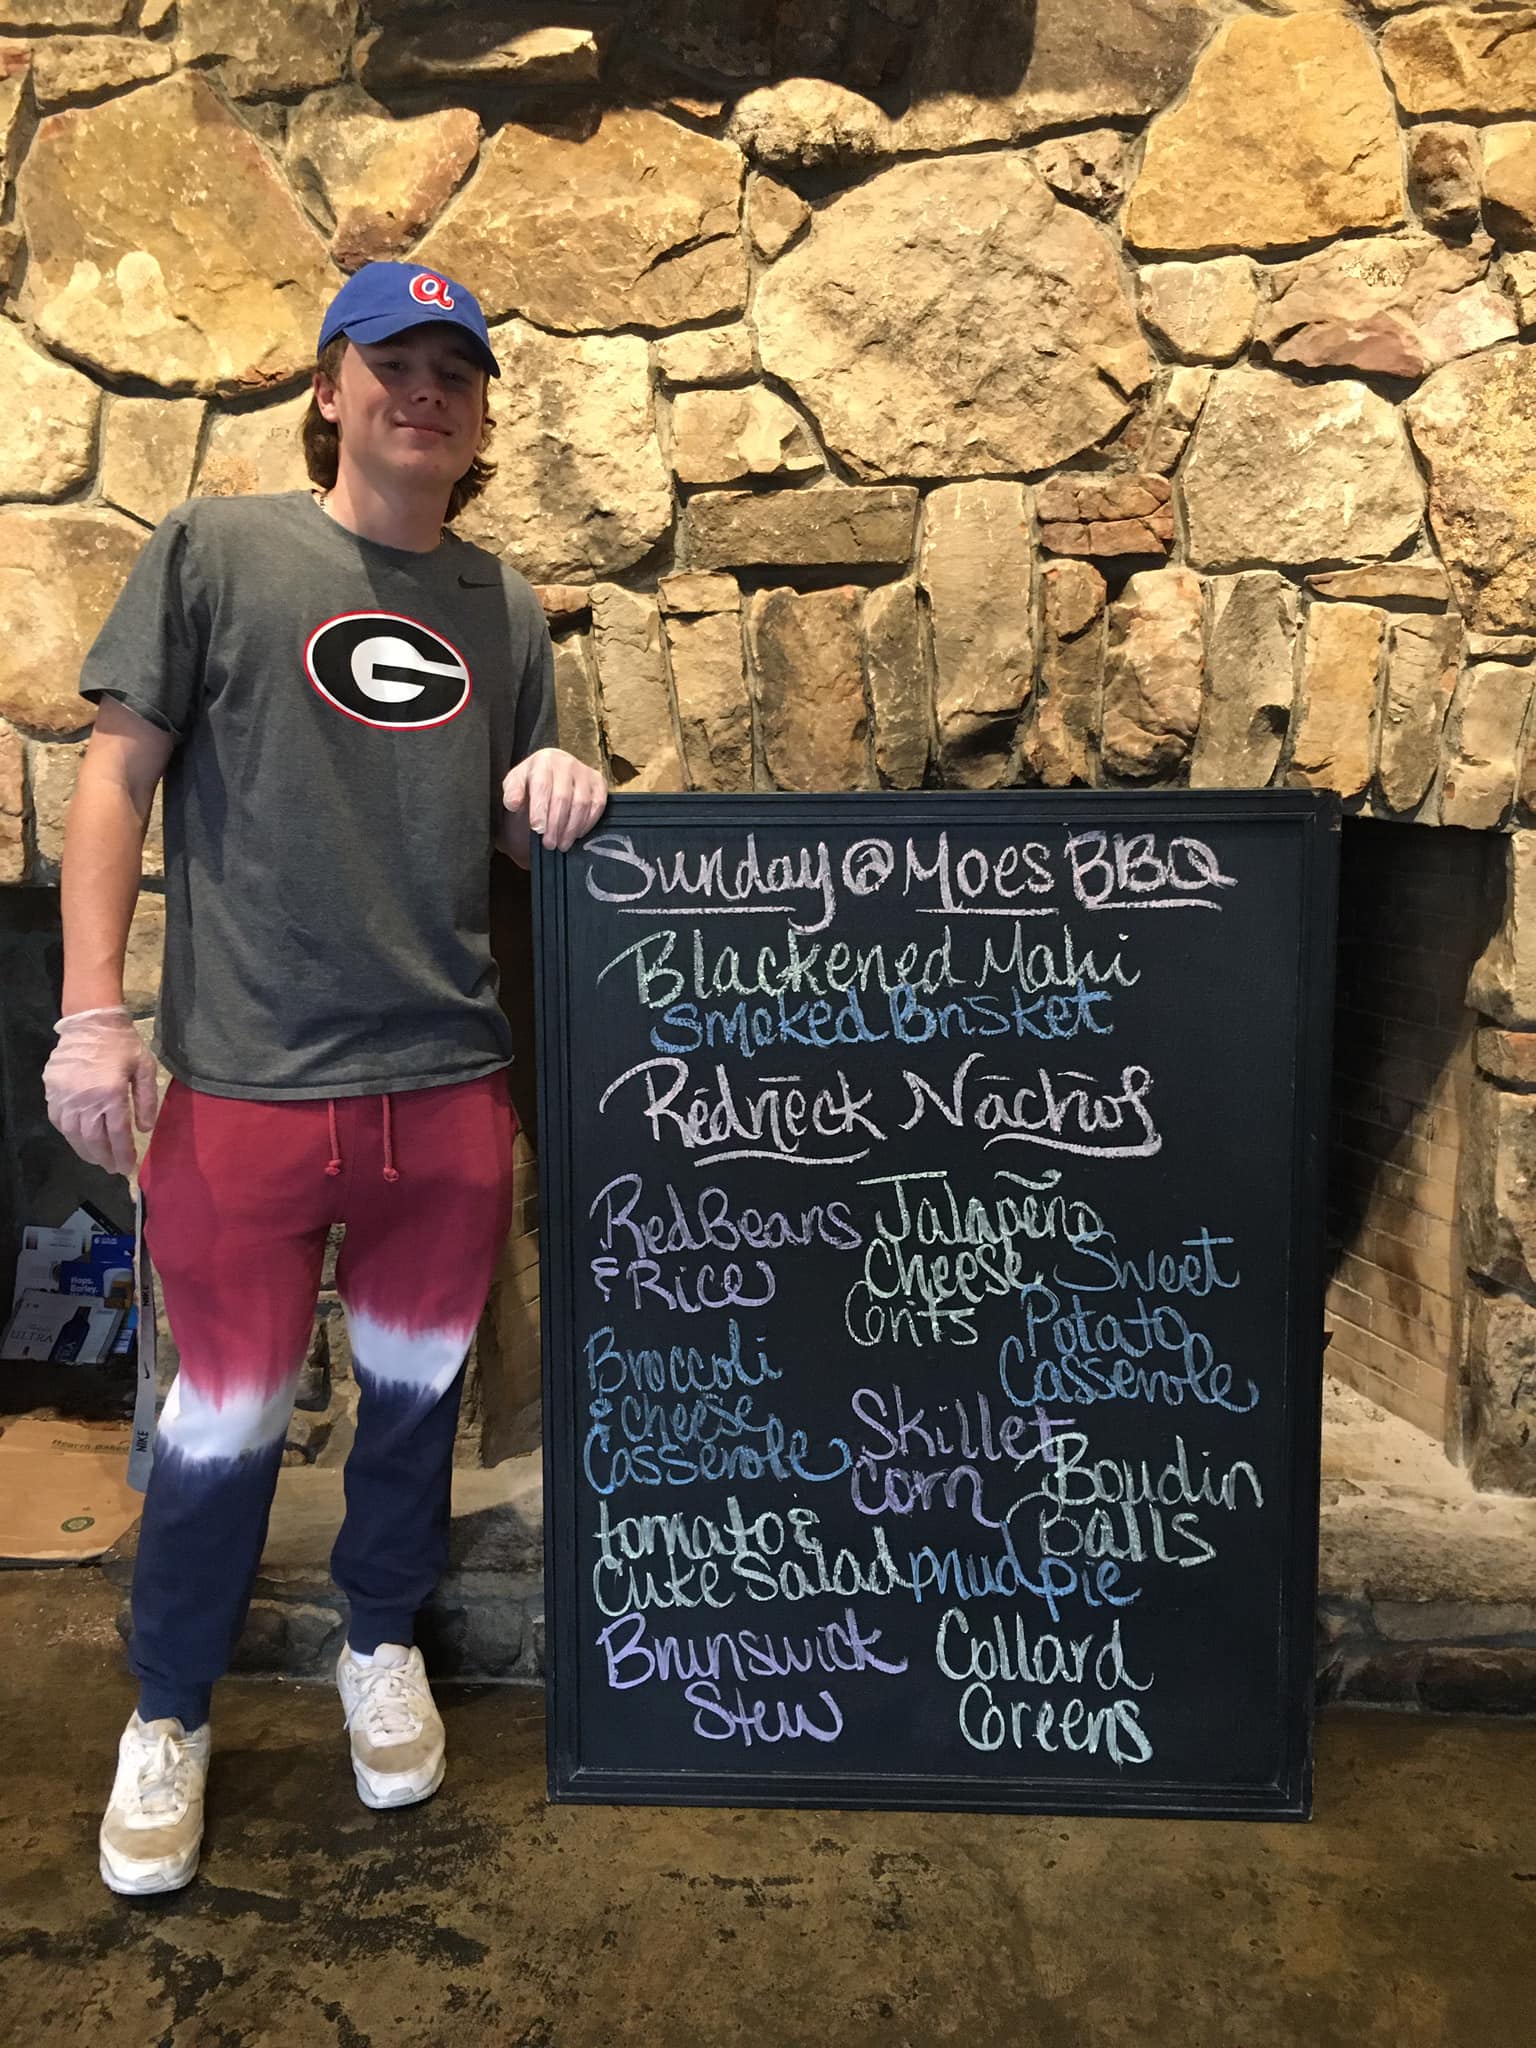 a
G
Sunday @ Moes BBQ
Blackened Mahi
Smoked Brisket
Redneck Nachos
Red Beans
& Rice
Jalapeño
Cheese
Grits
Sweet
Potato
Casserole
Broccoli
& cheese
Casserole
Skillet
Corn
Boudin
Balls
tomato &
Cuke Salad
mud pie
Brunswick
Stew
Collard
Greens
Hops.
Barley.
ULTRA
NIKE
NIKE
Hearth Baked